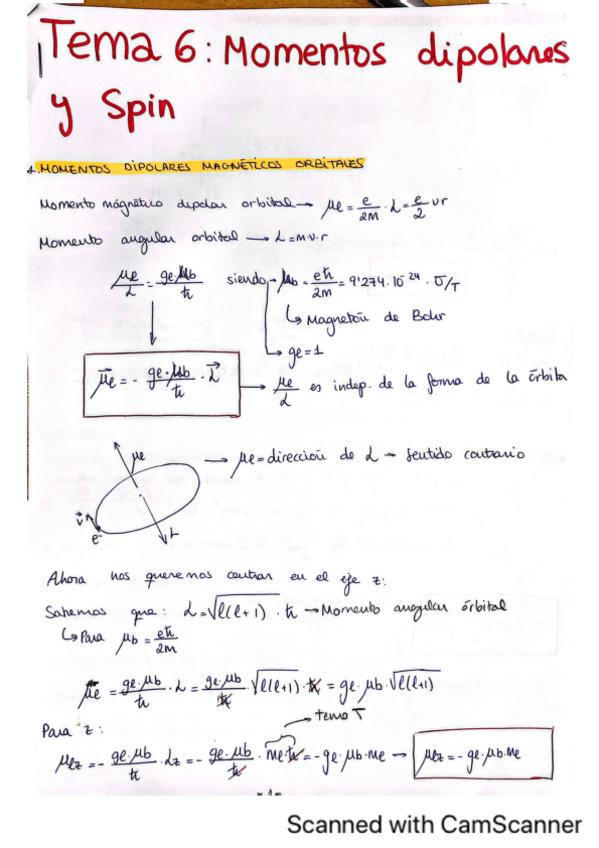 Tema 6: Momentos dipolares
y Spin
1. MOMENTOS DIPOLARES MAGNÉTICOS ORBITALES
Momento mágnético dipolar orbital → μe = e/2M · L = e/2 vr
Momento angular orbital → L = m·v·r
μe/L = ge·μb/ħ siendo → μb = eħ/2m = 9'274·10^24 · J/T
↳ Magnetón de Bohr
↳ ge = 1
μe = - ge·μb/ħ · L → μe/L es indep. de la forma de la órbita
μe
→ μe = dirección de L → sentido contrario
v
e⁻
L
Ahora nos queremos centrar en el eje z:
Sabemos que: L = √l(l+1) · ħ → Momento angular órbital
↳ Para μb = eħ/2M
μe = ge·μb/ħ · L = ge·μb/ħ · √l(l+1) · ħ = ge·μb·√l(l+1)
→ tema 7
Para z:
μez = - ge·μb/ħ · Lz = - ge·μb/ħ · me·ħ = -ge·μb·me → μez = -ge·μb·me
-1-
Scanned with CamScanner